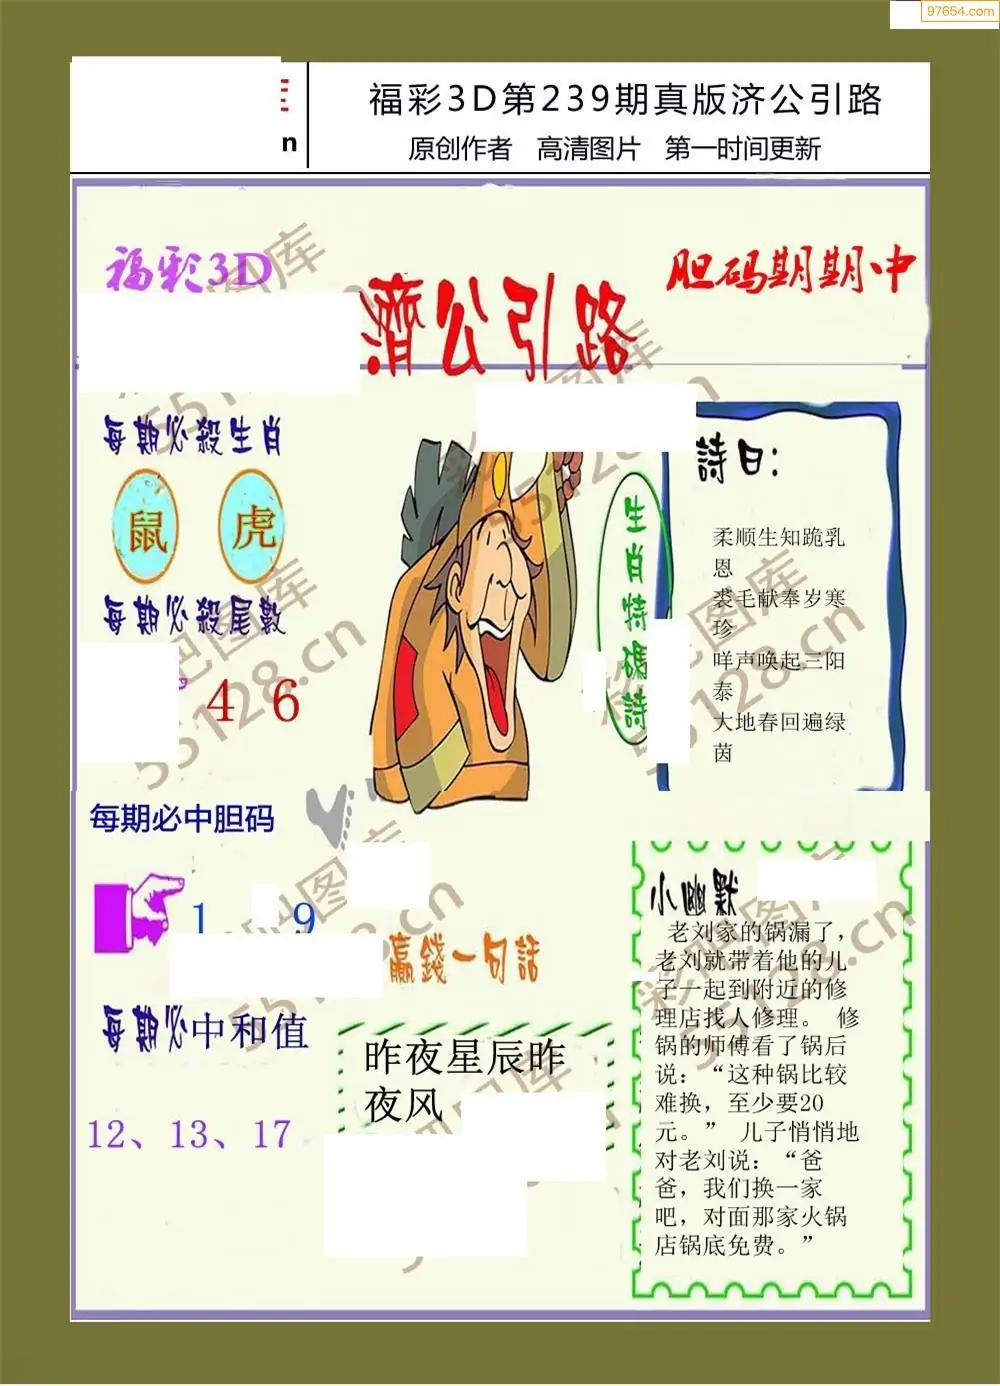 97654.com
n
福彩3D第239期真版济公引路
原创作者 高清图片 第一时间更新
福彩3D
胆码期期中
濟公引路
每期必殺生肖
鼠 虎
每期必殺尾數
4 6
生肖特碼詩
詩曰：
柔顺生知跪乳
恩
裘毛献奉岁寒
珍
咩声唤起三阳
泰
大地春回遍绿
茵
每期必中胆码
1 9
每期必中和值
12、13、17
贏錢一句話
昨夜星辰昨
夜风
小幽默
老刘家的锅漏了，
老刘就带着他的儿
子一起到附近的修
理店找人修理。 修
锅的师傅看了锅后
说：“这种锅比较
难换，至少要20
元。” 儿子悄悄地
对老刘说：“爸
爸，我们换一家
吧，对面那家火锅
店锅底免费。”
彩吧图库
55128.cn